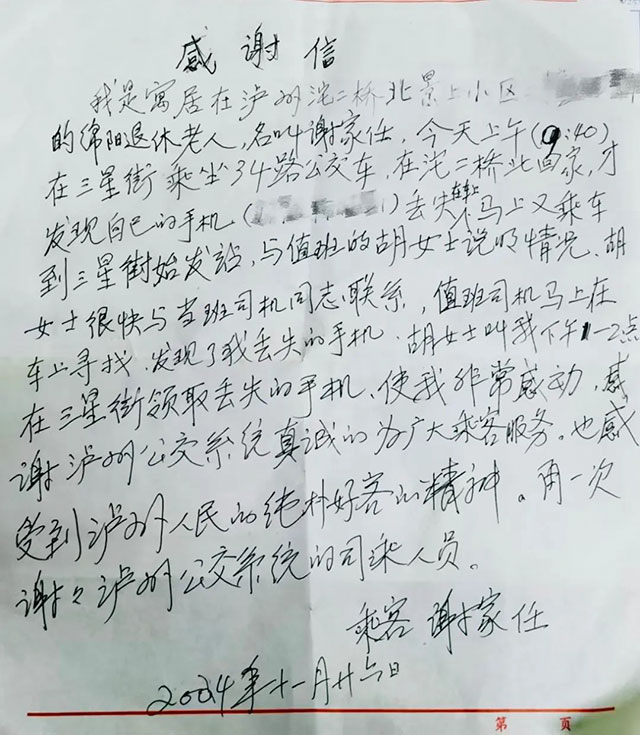 感谢信
我是寓居在泸州沱二桥北景上小区
的绵阳退休老人，名叫谢家任，今天上午(9:40)
在三星街乘坐34路公交车，在沱二桥北回家，才
发现自己的手机()丢失车上，马上又乘车
到三星街始发站，与值班的胡女士说明情况、胡
女士很快与当班司机同志联系，值班司机马上在
车上寻找，发现了我丢失的手机．胡女士叫我下午1-2点
在三星街领取丢失的手机、使我非常感动，感
谢泸州公交系统真诚的为广大乘客服务。也感
受到泸州人民的纯朴好客的精神。再一次
谢々泸州公交系统的司乘人员。
乘客 谢家任
2024年十一月廿六日
第 页